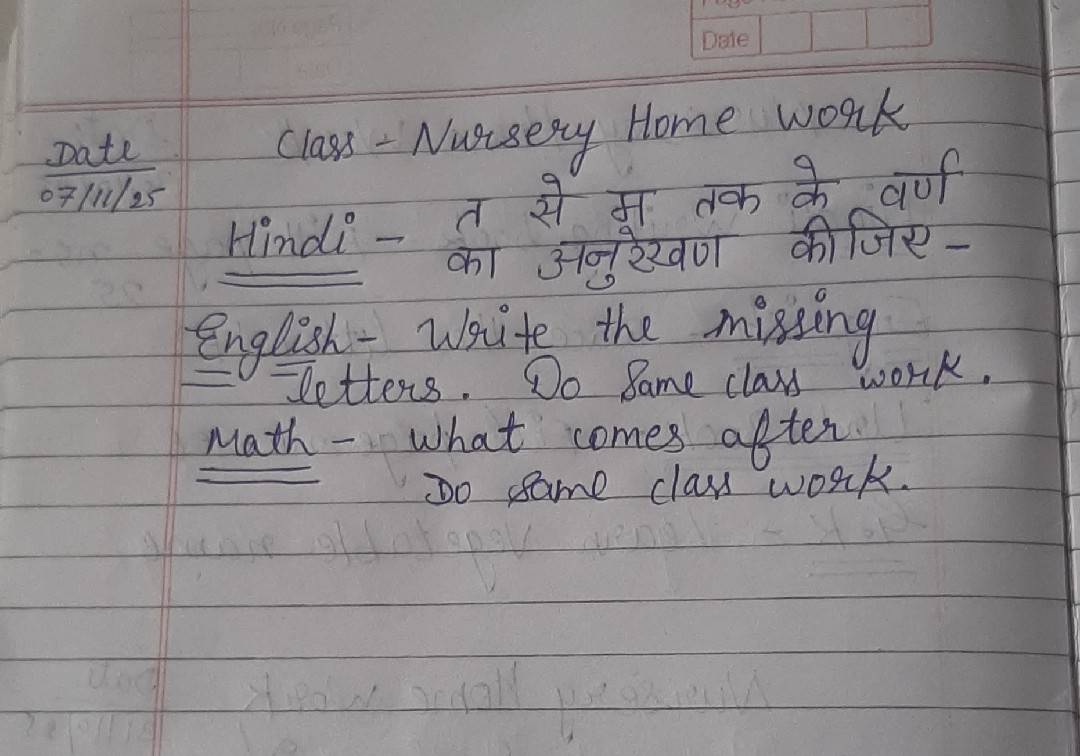 Date
Class - Nursery Home work
Date
07/11/25
Hindi - त से म तक के वर्ण
का अनुरेखण कीजिए -
English - Write the missing
letters. Do same class work.
Math - What comes after
Do same class work.